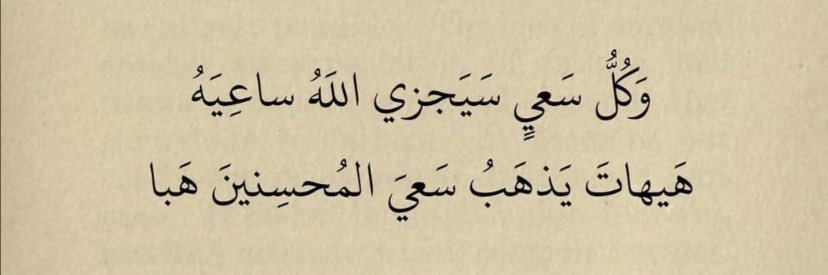 وَكُلُّ سَعيٍ سَيَجزي اللَهُ ساعِيَهُ
هَيهاتَ يَذهَبُ سَعيَ المُحسِنينَ هَبا